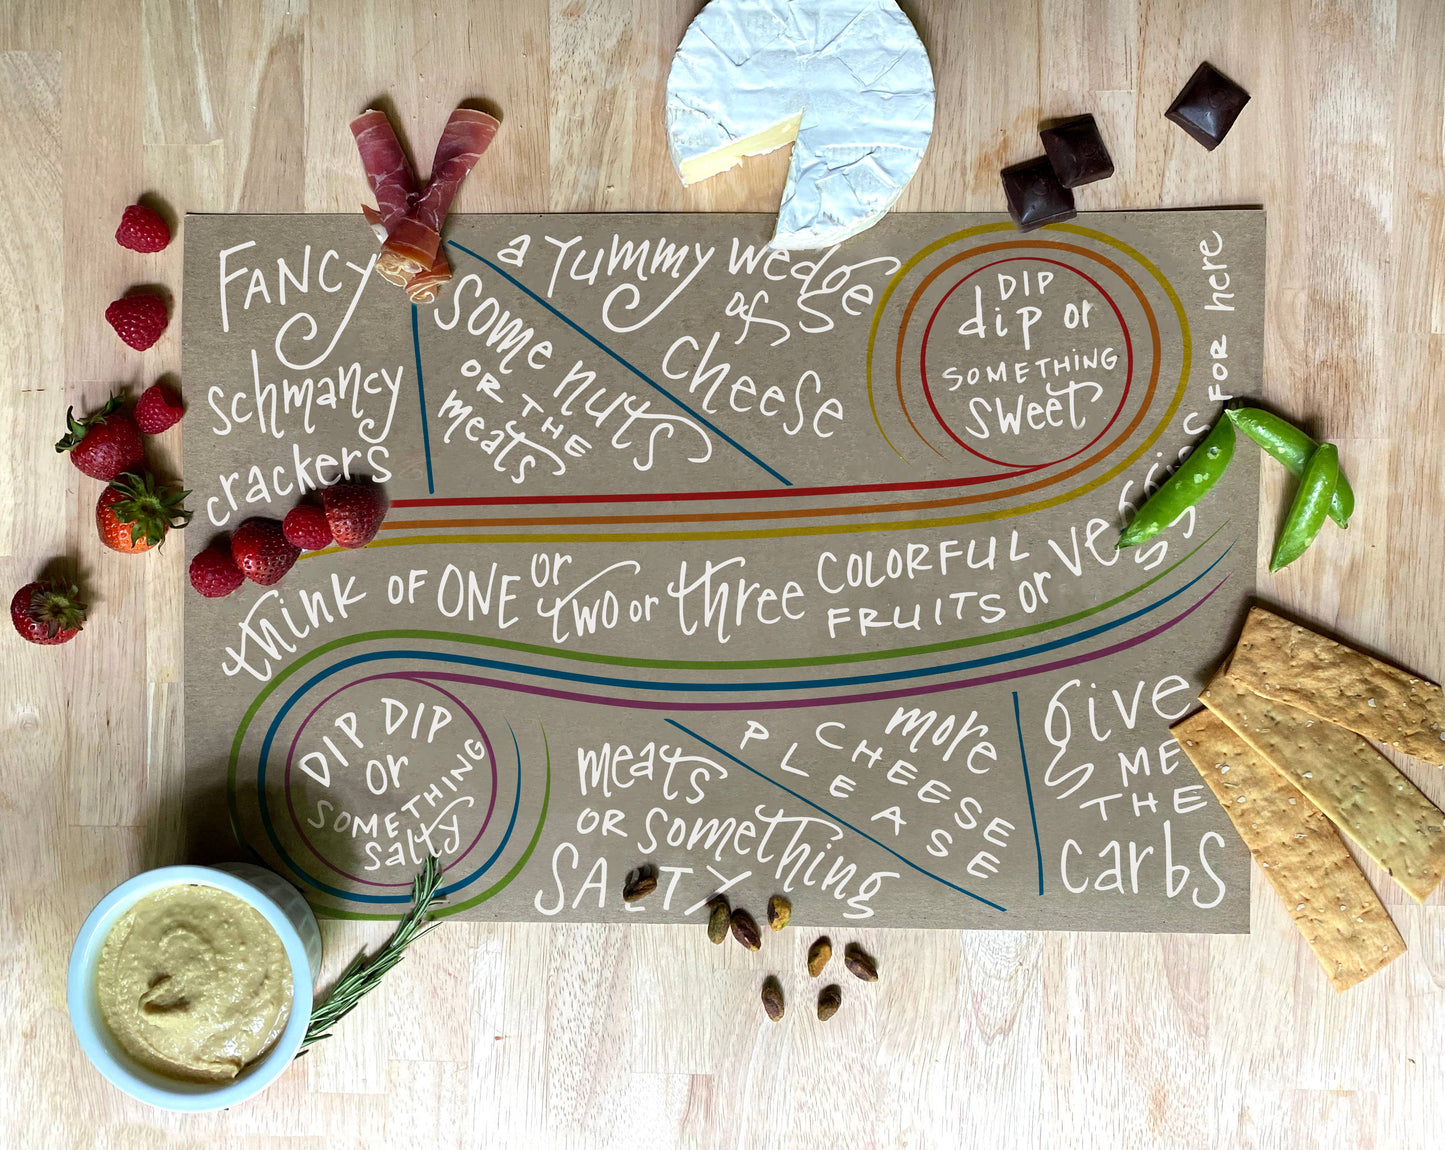 Fancy
schmancy
crackers
some nuts
or the
meats
a yummy wedge
of
cheese
Dip
dip or
something
sweet
think of one or two or three colorful fruits or veggies for here
Dip Dip
or
something
salty
meats
or something
salty
more
cheese
please
give
me
the
carbs